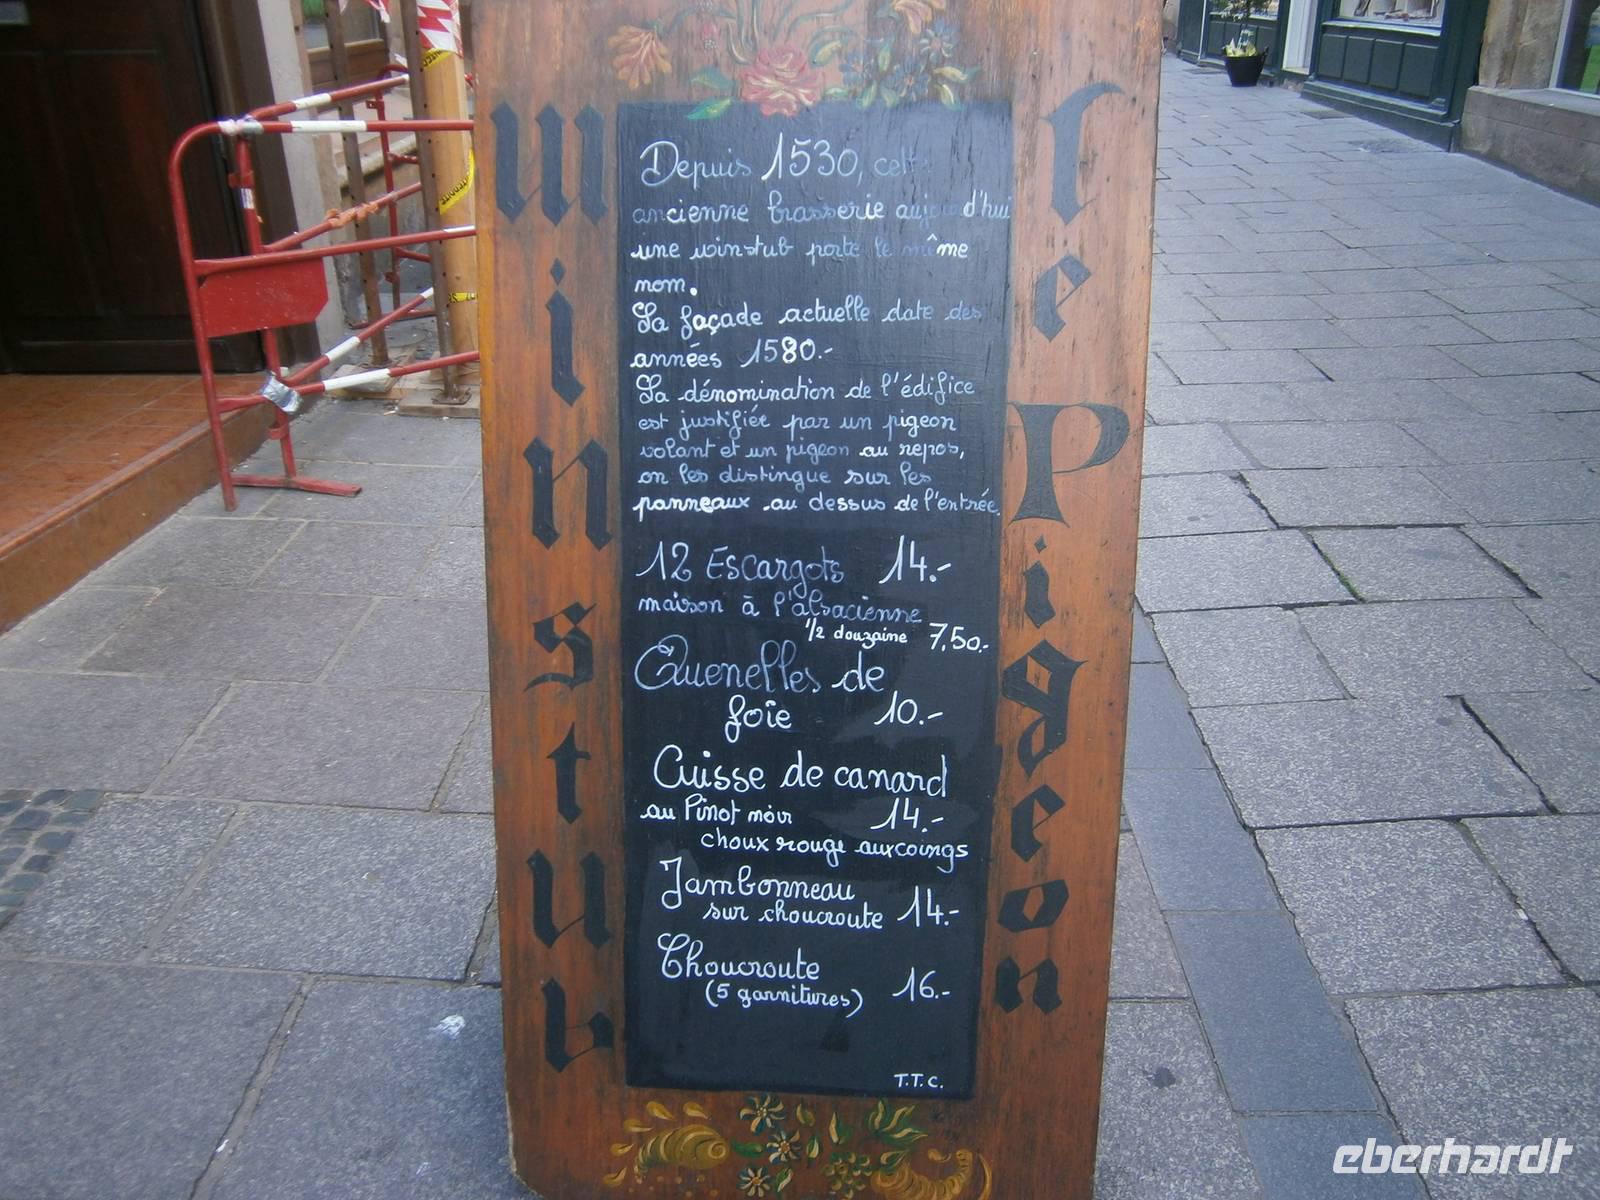 Winstub
Le Pigeon
Depuis 1530, cette
ancienne brasserie aujourd'hui
une winstub porte le même
nom.
La façade actuelle date des
années 1580.-
La dénomination de l'édifice
est justifiée par un pigeon
volant et un pigeon au repos,
on les distingue sur les
panneaux au dessus de l'entrée.
12 Escargots 14.-
maison à l'alsacienne
1/2 douzaine 7,50.-
Quenelles de
foie 10.-
Cuisse de canard
au Pinot noir 14.-
choux rouge aux coings
Jambonneau
sur choucroute 14.-
Choucroute
(5 garnitures) 16.-
T.T.C.
eberhardt